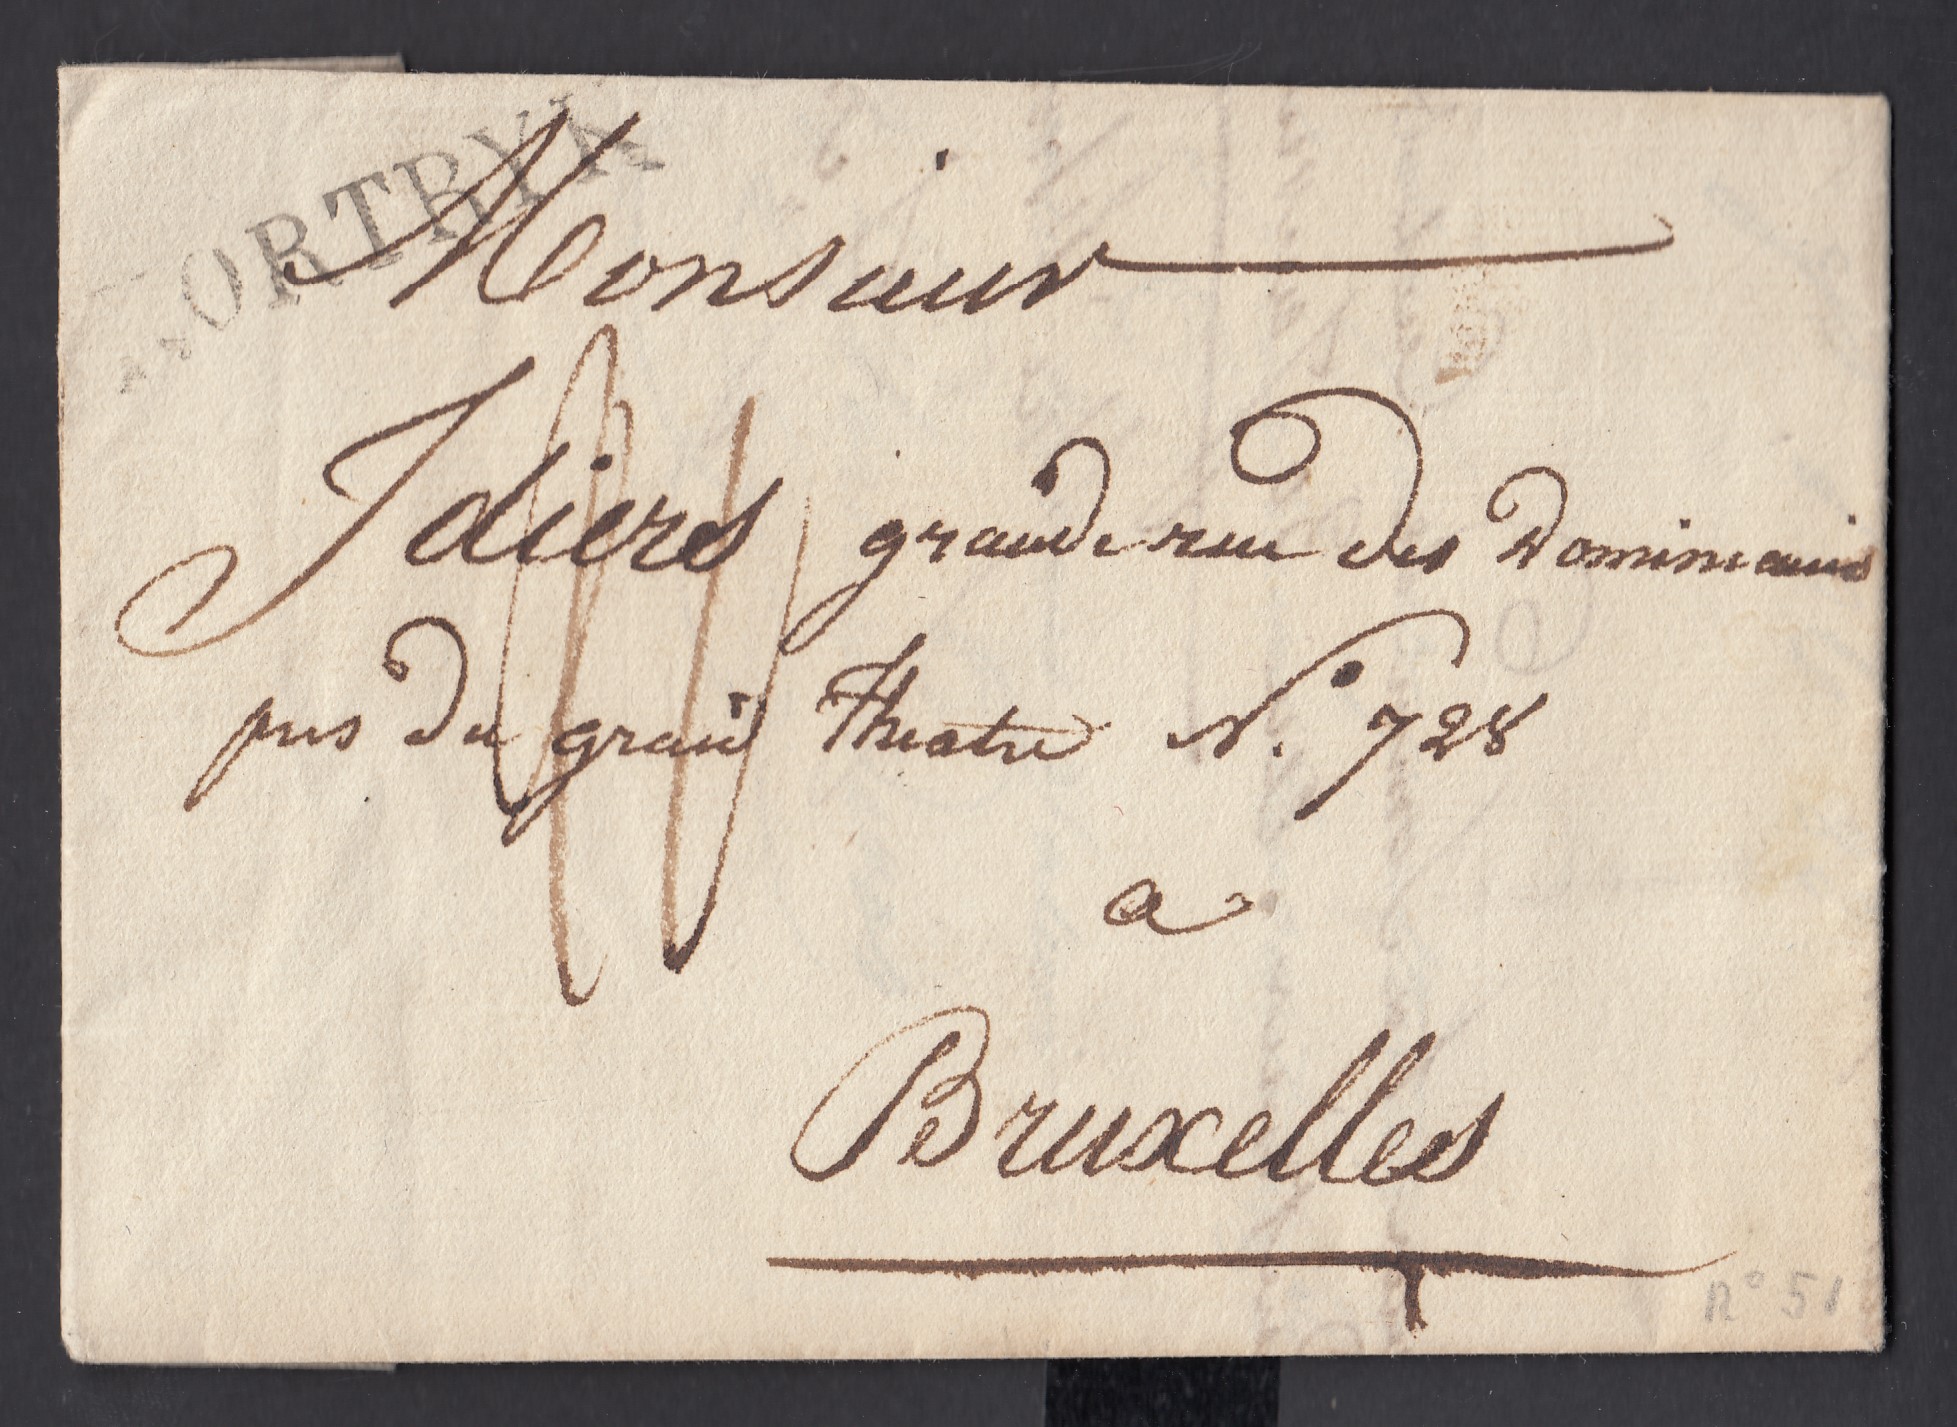 KORTRYK
Monsieur
Idiers grande rue des Dominicains
pres du grand Theatre N.° 728
a
Bruxelles
n° 51